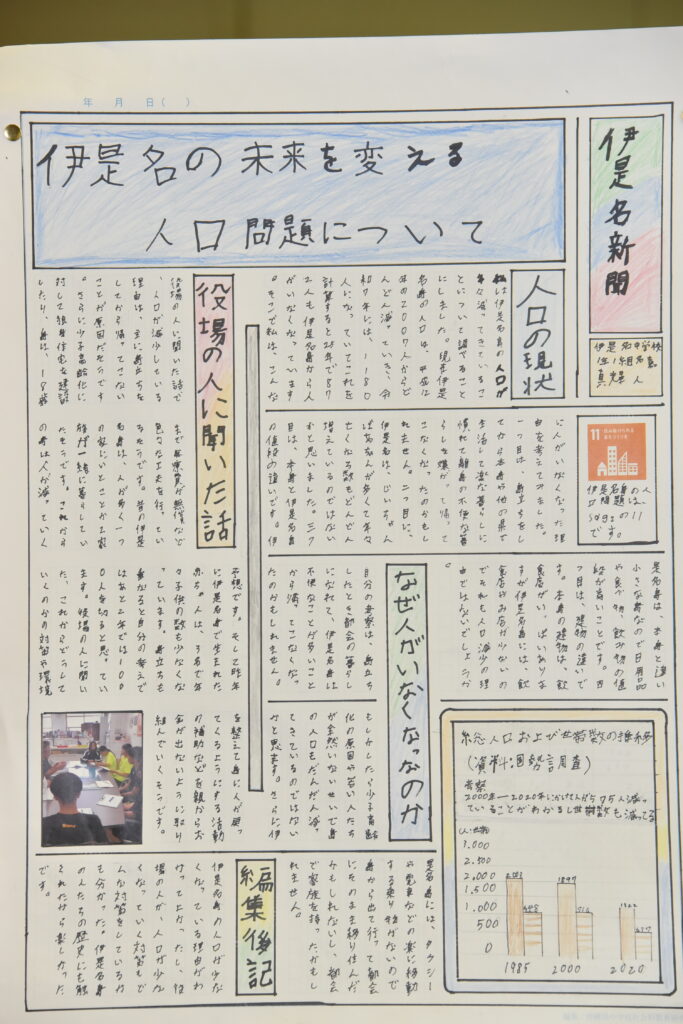 年 月 日( )
伊是名新聞
伊是名の未来を変える
人口問題について
伊是名中学校
人口の現状
私は伊是名島の人口が
年々減ってきているこ
とについて調べること
にしました。現在伊是
名島の人口は、
んどん減っていき、令
和7年には、1180
人になっていてこれを
計算すると25年で87
2人も伊是名島から人
がいなくなっています
。そこで私は、こんな
に人がいなくなった理
由を考えてみました。
一つ目は、島立ちをし
てから本島や他の県で
生活して楽な暮らしに
慣れて離島の不便な暮
らしを嫌がって帰って
こなくなったのかもし
れません。二つ目に、
伊是名は、じいちゃん
ばあちゃんが多くて年々
亡くなる数もどんどん
増えているのではない
かと思いました。三つ
目は、本島と伊是名島
の値段の違いです。伊
是名島は、本島と違い
小さな島なので日用品
や食べ物、飲み物の値
段が高いことです。四
つ目は、建物の違いで
す。本島の建物は、飲
食店がいっぱいありま
すが伊是名島には、飲
食店やお店が少ないの
でそれも人口減少の理
由ではないでしょうか
。
11 住み続けられる
まちづくりを
伊是名島の人
口問題は、
sdgsの11
です。
なぜ人がいなくなったのか
自分の考察は、島立ち
したとき都会の暮らし
になれて、伊是名島は
不便なことが多いこと
から帰ってこなくなっ
たのかもしれません。
もしかしたら少子高齢
化の原因や若い人たち
が全然いないせいで島
の人口もだんだん減っ
てきているのではない
かと思います。さらに伊
是名島には、タクシー
や電車などの楽に移動
する乗り物がないので
島から出て行って都会
にそのまま移り住んだ
かもしれないし、都会
で家族を持ったかもし
れません。
役場の人に聞いた話
役場の人に聞いた話で
、人口が減少している
理由は、主に島立ちを
してから帰ってこない
ことが原因だそうです
。さらに少子高齢化に
対して独身住宅を建設
したり、島は、18歳
まで医療費が無償など
色々な工夫を行ってい
るそうです。昔の伊是
名島は、人が多く一つ
の家にいとことか三家
族が一緒に暮らしてい
たそうです。これから
の島は人が減っていく
予想です。そして昨年
に伊是名島で生まれた
赤ちゃんは、3名で年
々子供の数も少なくな
っています。島立ちも
重なると自分の考えで
はあと2年では100
0人を切ると思ってい
ます。役場の人に聞い
た、これからどうして
いくのかの対策や環境
を整えて島に人が戻っ
てくるようにする活動
の補助などを親からお
金が出ないように取り
組んでいくそうです。
総人口および世帯数の推移
(資料:国勢調査)
考察
2000年〜2020年にかけてだんだん人減っ
ていることがわかるし世帯数も減ってる
人・世帯
3.000
2.500
2.000
1.500
1.000
500
0
1897
1985 2000 2020
編集後記
伊是名島の人口が少な
くなっている理由がわ
かってよかったし、役
場の人が、人口が少な
くなっていく対策もど
んな対策をしているか
も分かった。伊是名島
の人たちの歴史にも触
れれたから楽しかった
です。